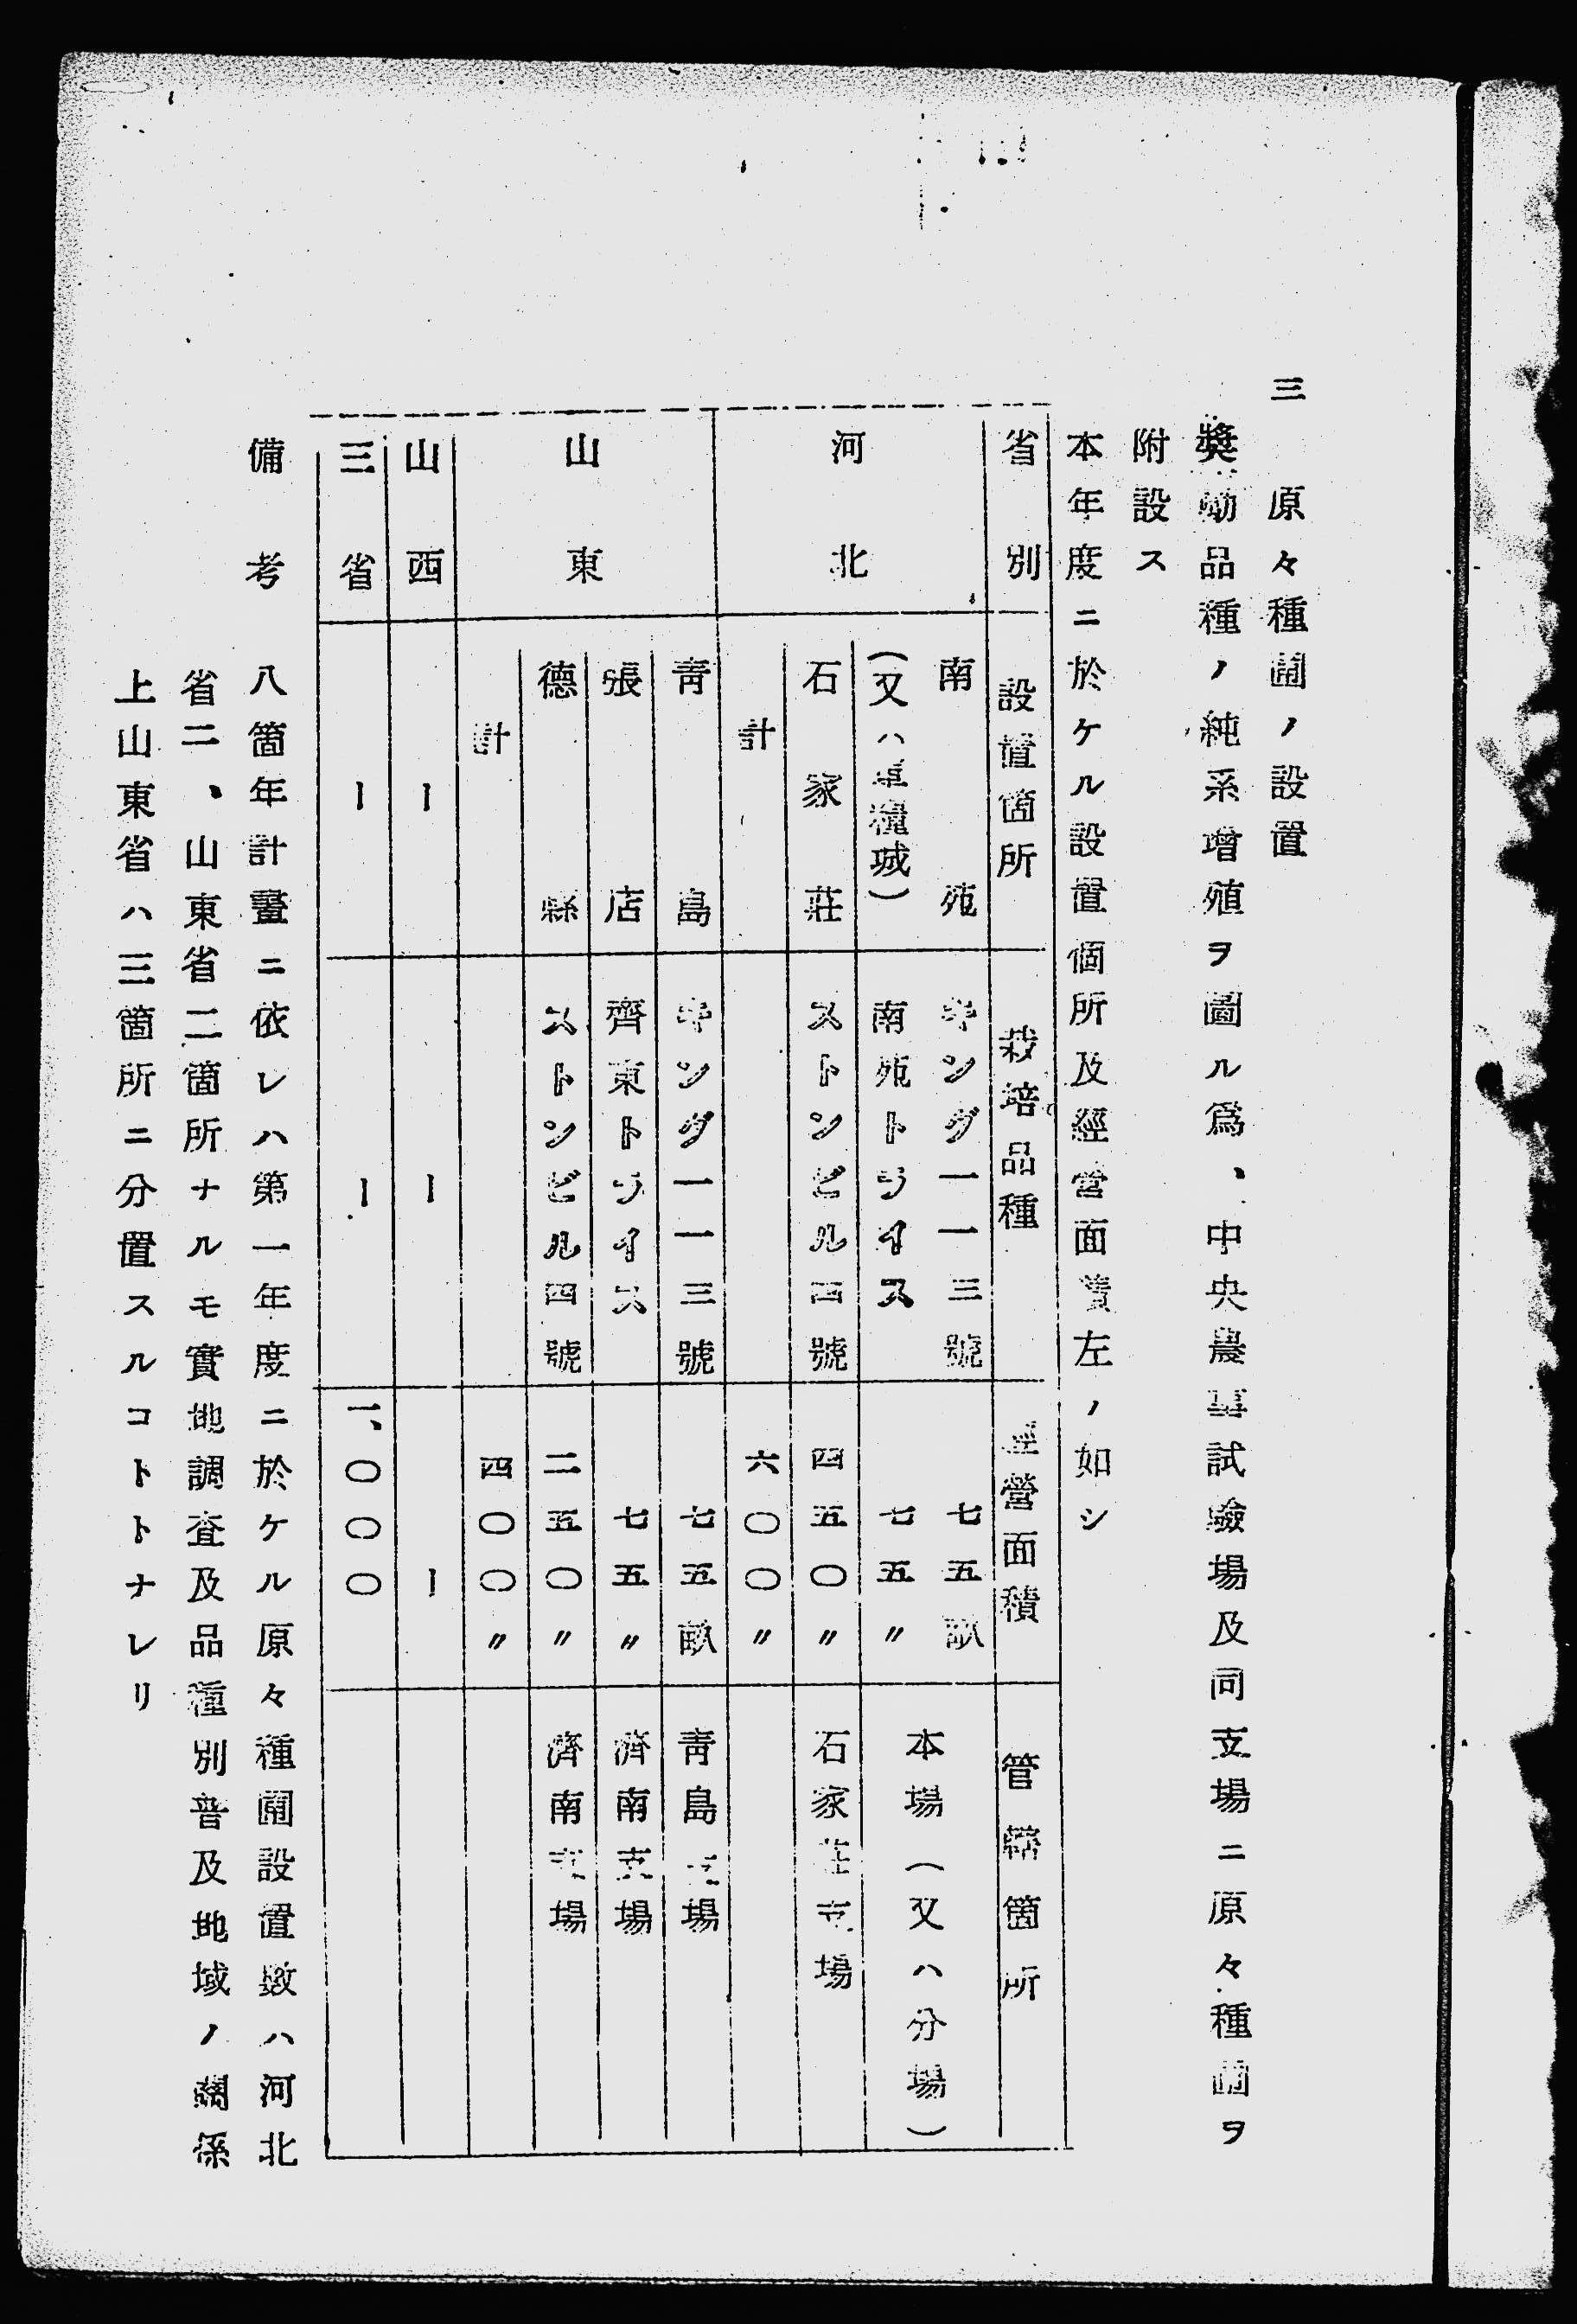 三 原々種圃ノ設置
奬勵品種ノ純系增殖ヲ圖ル爲、中央農事試驗場及同支場ニ原々種圃ヲ
附設ス
本年度ニ於ケル設置個所及經營面積左ノ如シ
省別 設置箇所 栽培品種 經營面積 管轄箇所
河北 南苑 キング一一三號 七五畝 本場(又ハ分場)
(又ハ 城) 南苑トライス 七五〃
石家莊 ストンビル四號 四五〇〃 石家莊支場
計 六〇〇〃
山東 靑島 キング一一三號 七五畝 靑島支場
張店 齊東トライス 七五〃 濟南支場
德縣 ストンビル四號 二五〇〃 濟南支場
計 四〇〇〃
山西 ー ー ー
三省 ー ー 一、〇〇〇
備考 八箇年計畫ニ依レハ第一年度ニ於ケル原々種圃設置數ハ河北
省二、山東省二箇所ナルモ實地調査及品種別普及地域ノ關係
上山東省ハ三箇所ニ分置スルコトトナレリ